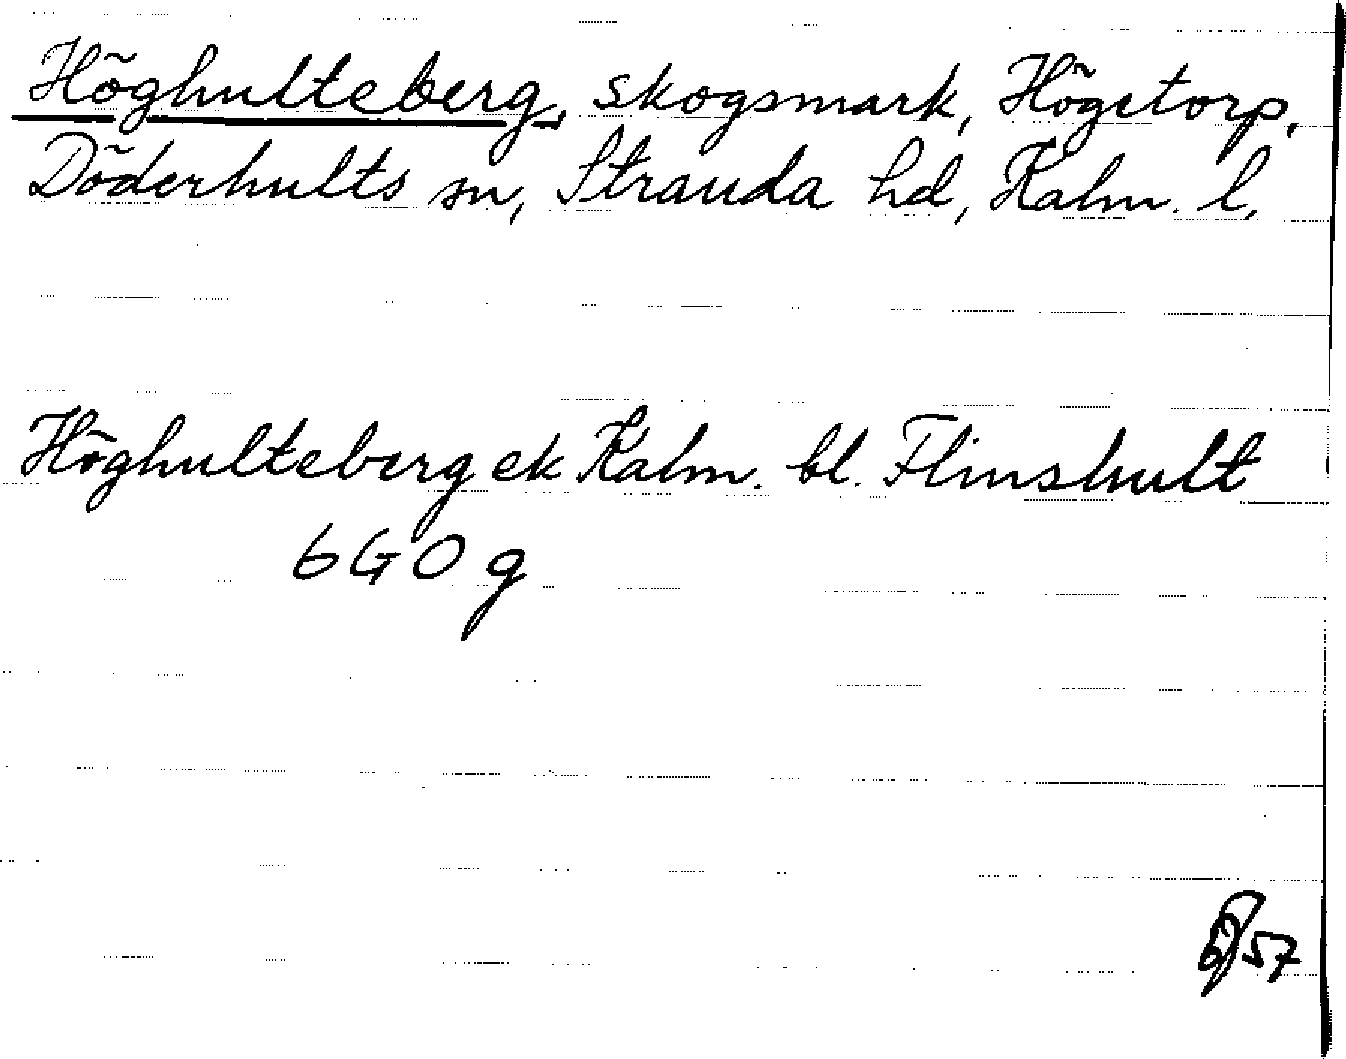 Höghulteberg, skogsmark, Högetorp,
Döderhults sn, Stranda hd, Kalm. l.
Höghulteberg ek Kalm. bl. Flinshult
6G0g
57